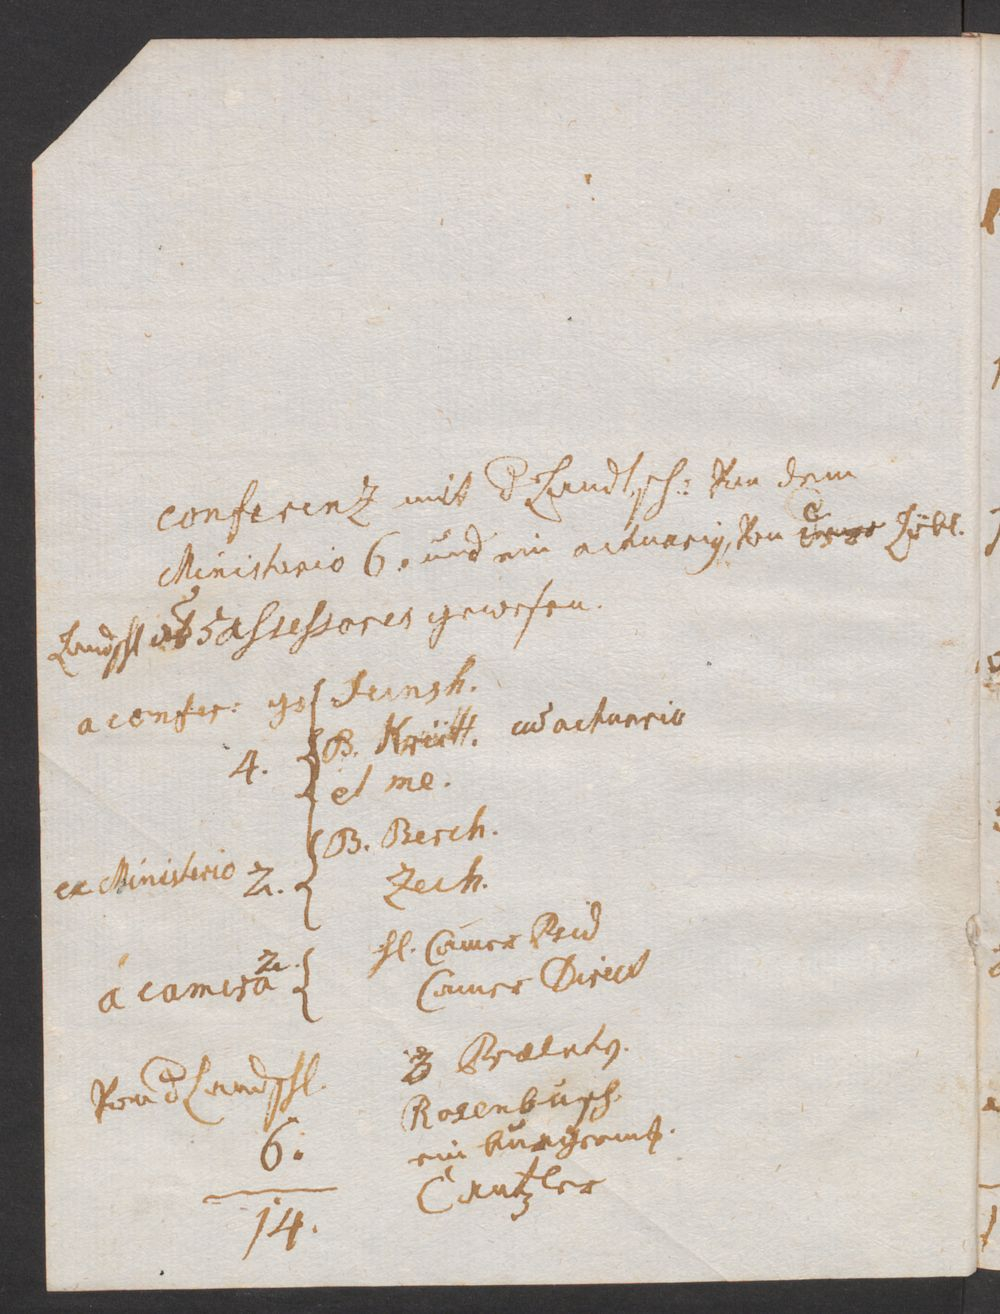 conferenz mit d Landtsch: Von dem
Ministerio 6. und ein actuarig, Von Löbl.
Landschl 5 assessores gewesen.
a confer: Seinsh.
4. B. Kreitt. actuario
et me.
B. Berch.
ex Ministerio 2. Zech.
hl. Camer Prid
2. a camera Camer Direct
Von d Landschl. 3 Praelaty.
Rosenbusch.
6. ein burgerms.
Cantzler
14.